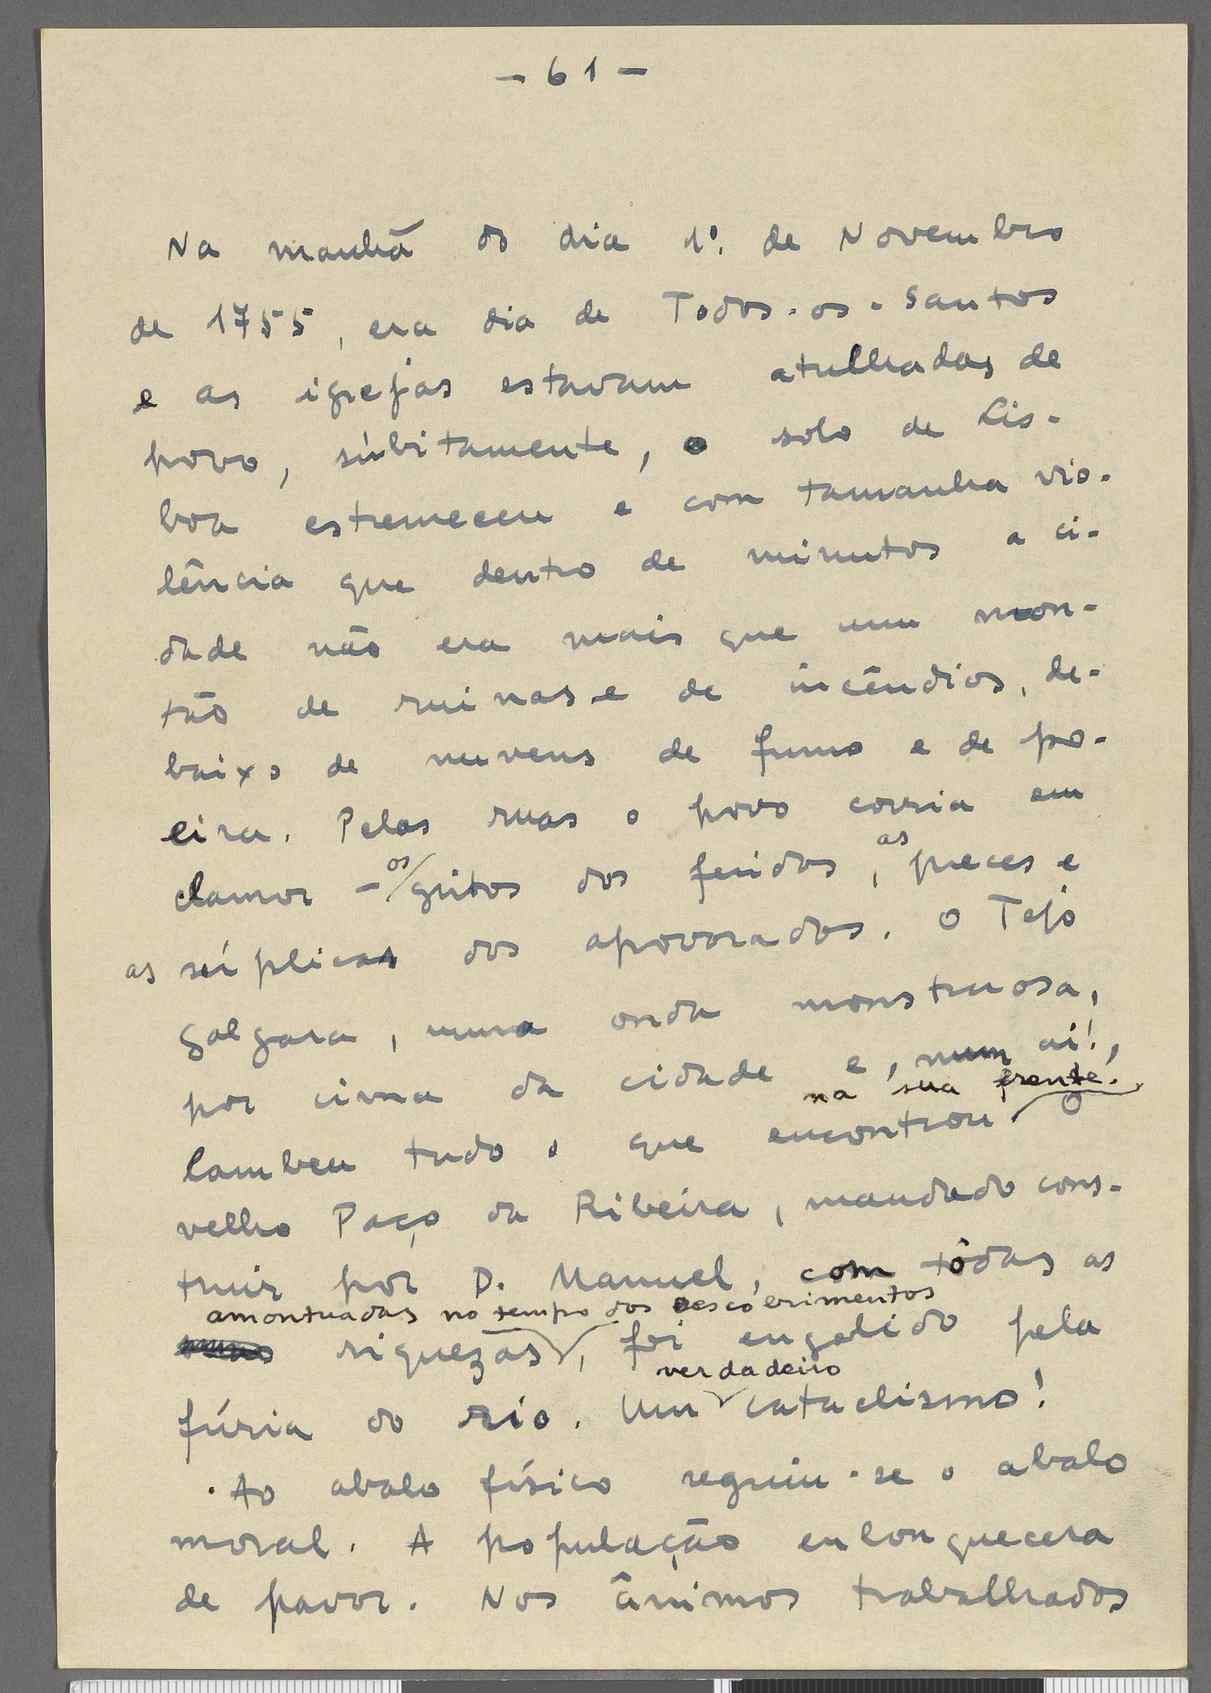 - 61 -
Na manhã do dia 1º. de Novembro
de 1755, era dia de Todos-os-Santos
e as igrejas estavam atulhadas de
povo, súbitamente, o solo de Lis-
boa estremeceu e com tamanha vio-
lência que dentro de minutos a ci-
dade não era mais que um mon-
tão de ruinas e de incêndios, de-
baixo de nuvens de fumo e de po-
eira. Pelas ruas o povo corria em
clamor - os gritos dos feridos, as preces e
as súplicas dos apovorados. O Tejo
galgara, numa onda monstruosa,
por cima da cidade e, num ai!,
lambeu tudo o que encontrou na sua frente. O
velho Paço da Ribeira, mandado cons-
truir por D. Manuel, com tôdas as
riquezas amontuadas no tempo dos descobrimentos, foi engolido pela
fúria do rio. Um verdadeiro cataclismo!
Ao abalo físico seguiu-se o abalo
moral. A população enlouquecera
de pavor. Nos ânimos trabalhados